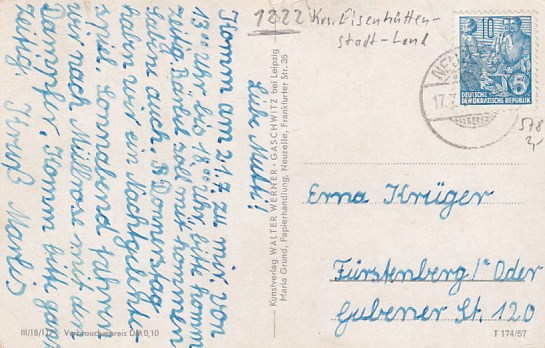 1222 Krs. Eisenhütten-
stadt-Land
10
DEUTSCHE
DEMOKRATISCHE REPUBLIK
NEU
17.
578
2,-
Liebe Mutti!
Komm am 21.7. zu mir, von
13⁰⁰ Uhr bis 18⁰⁰ Uhr, bitte komm
Rabel soll mit kommen
auch. Donnerstag
haben wir ein Nachtgelände-
spiel. Sonnabend fahren
wir nach Müllrose mit de
Dampfer. Komm bitte ganz
zeitig. Gruß
Kunstverlag WALTER WERNER · GASCHWITZ bei Leipzig
Maria Grund, Papierhandlung, Neuzelle, Frankfurter Str. 35
Erna Krüger
Fürstenberg/Oder
Gubener St. 120
III/18/1 Verbraucherpreis DM 0,10
T 174/57